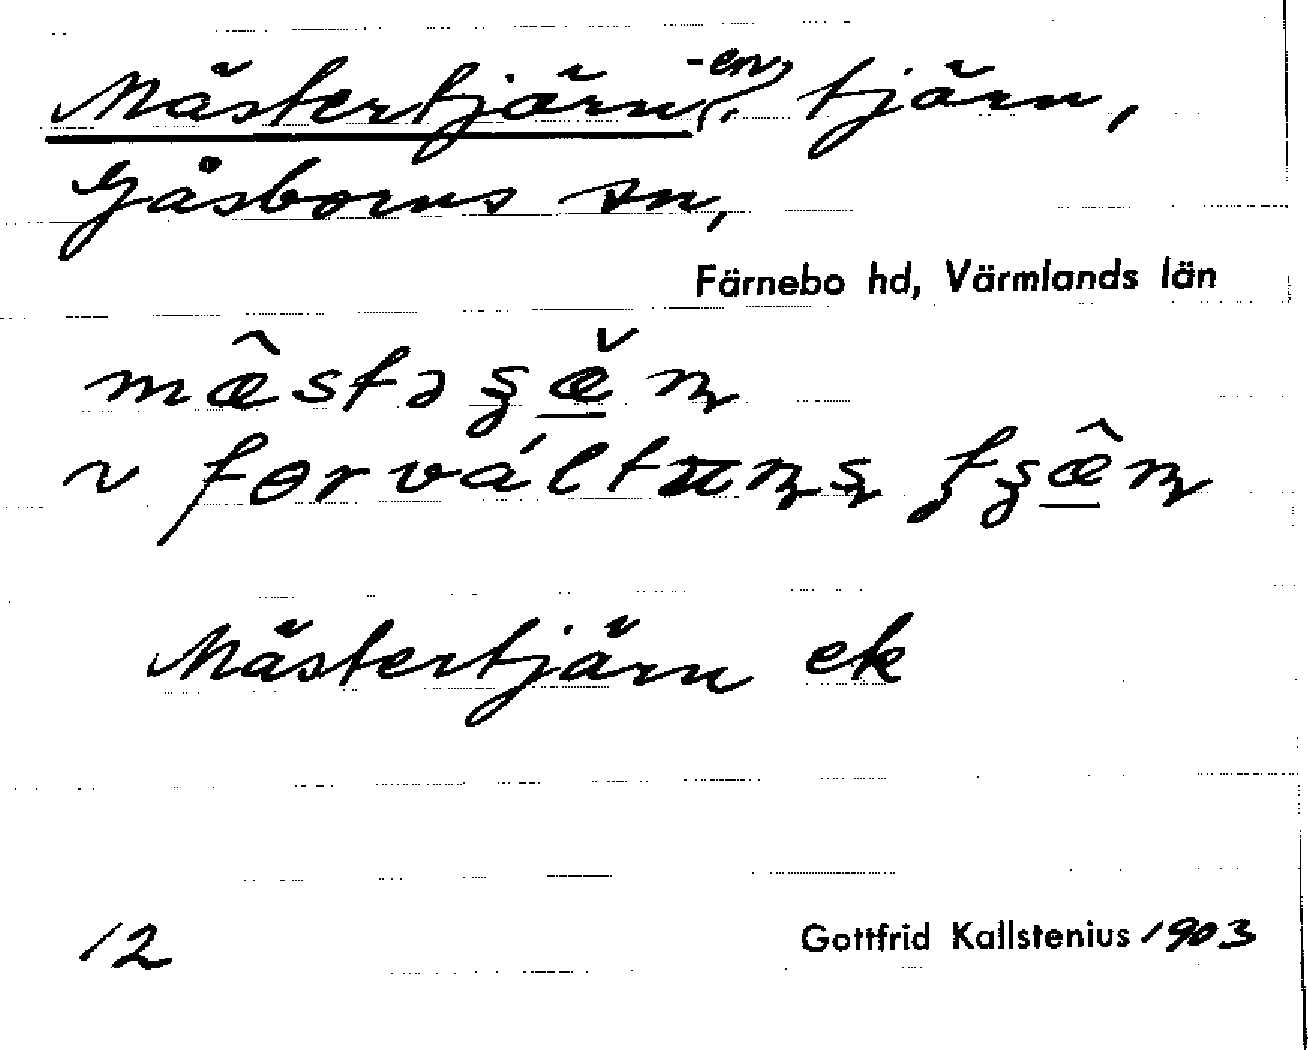 Mästertjärn, -en, tjärn,
Gåsborns sn,
Färnebo hd, Värmlands län
Mästertjärn ek
12
Gottfrid Kallstenius 1903